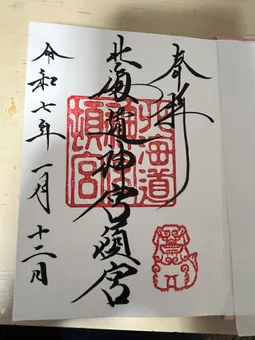 奉拝
北海道神宮頓宮
令和七年一月十二日
北海道
頓宮